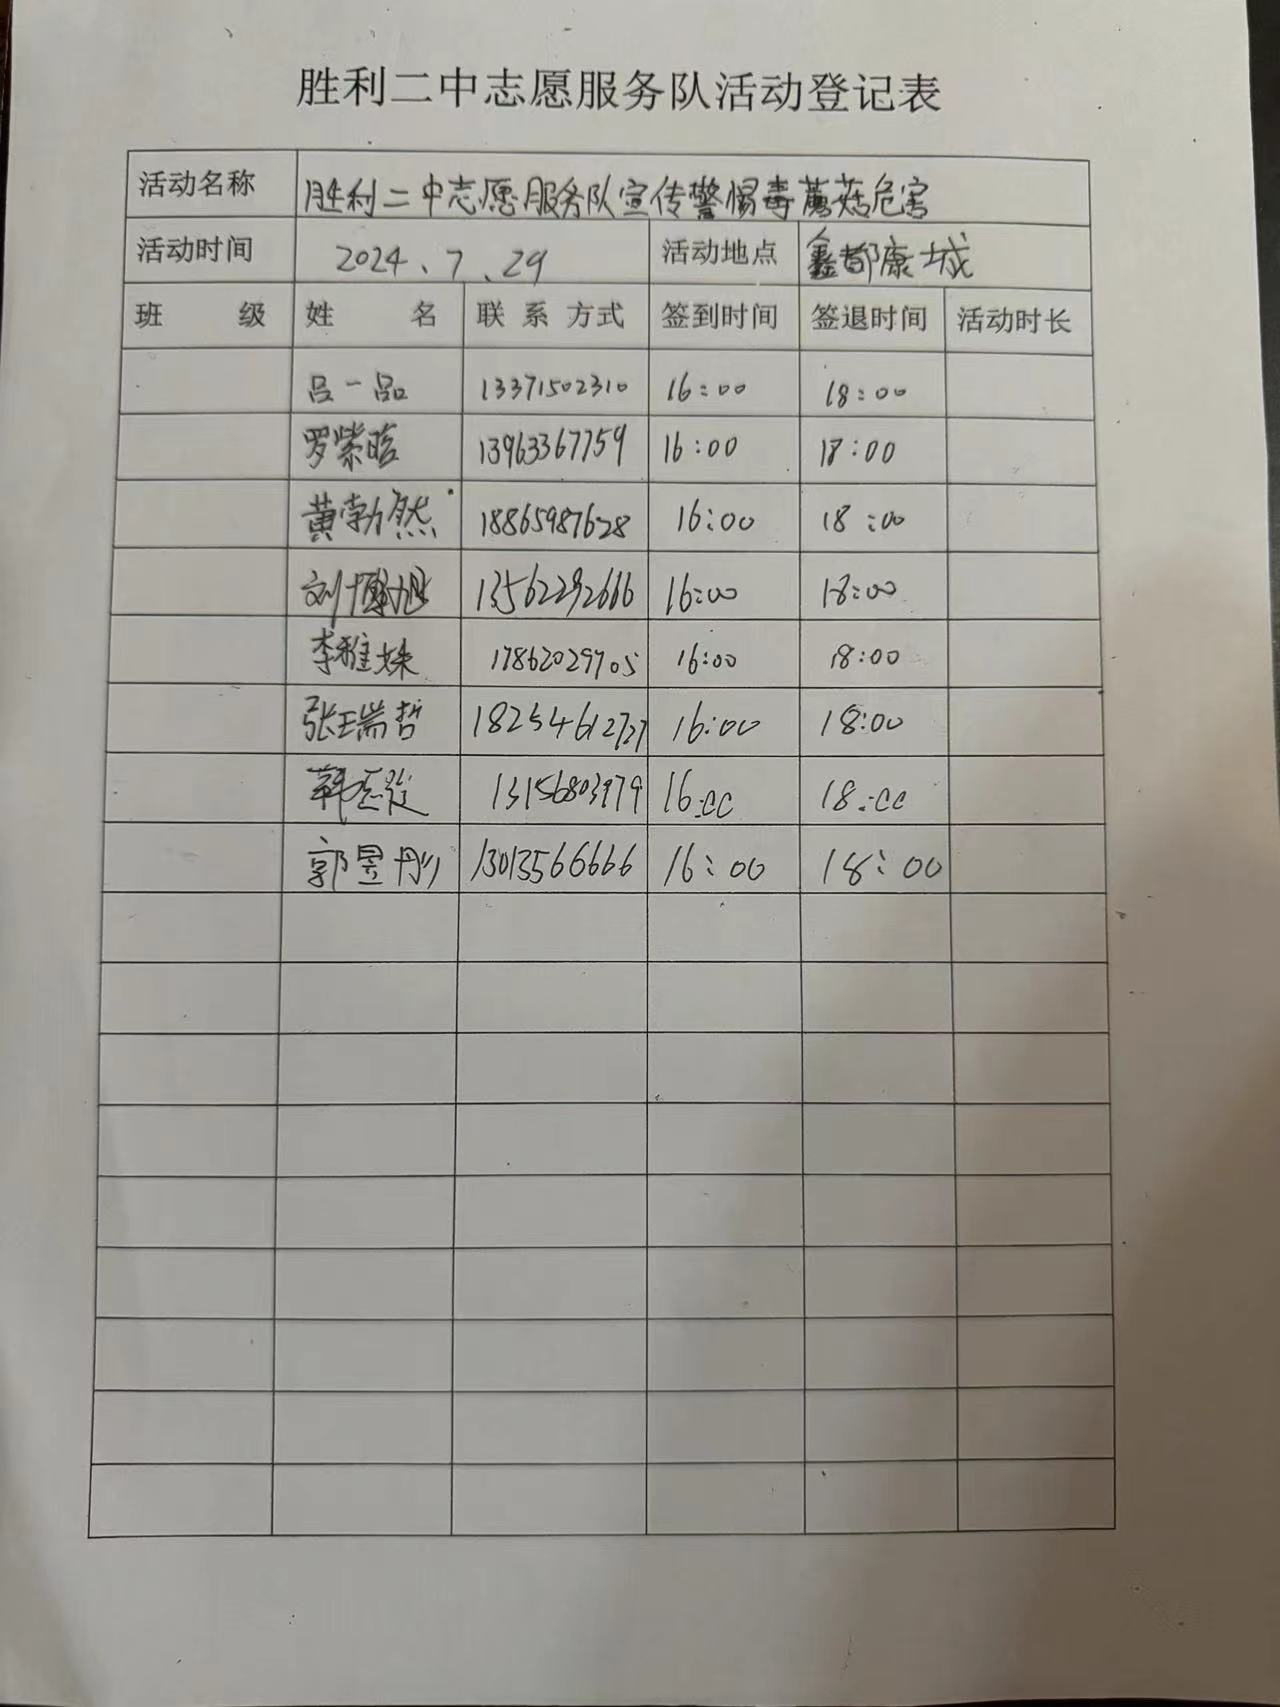 胜利二中志愿服务队活动登记表
活动名称 胜利二中志愿服务队宣传警惕毒蘑菇危害
活动时间 2024、7、29 活动地点 鑫都康城
班 级 姓 名 联系方式 签到时间 签退时间 活动时长
吕一品 13371502310 16:00 18:00
罗紫晗 13963367759 16:00 18:00
黄勃然 18865987628 16:00 18:00
刘博旭 13562292666 16:00 18:00
李雅姝 17862029705 16:00 18:00
张瑞哲 18254612727 16:00 18:00
韩 13156803979 16:00 18:00
郭昱彤 13013566666 16:00 18:00